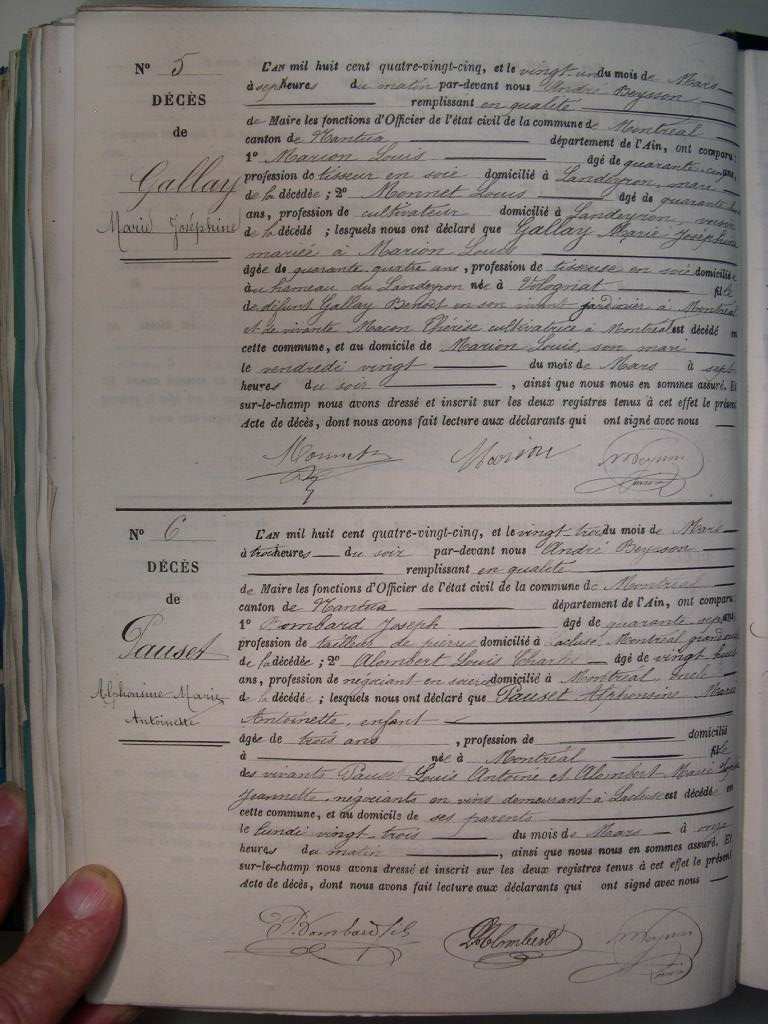 N° 5
DÉCÈS
de
Gallay
Marie Joséphine
L'AN mil huit cent quatre-vingt-cinq, et le vingt-un du mois de Mars
à sept heures du matin par-devant nous André Beysson
remplissant en qualité
de Maire les fonctions d'Officier de l'état civil de la commune de Montréal
canton de Nantua département de l'Ain, ont comparu:
1° Marion Louis âgé de quarante-cinq ans,
profession de tisseur en soie domicilié à Landeyron, mari
de la décédée; 2° Monnet Louis âgé de quarante
ans, profession de cultivateur domicilié à Landeyron, voisin
de la décédé; lesquels nous ont déclaré que Gallay Marie Joséphine
mariée à Marion Louis
âgée de quarante quatre ans, profession de tisseuse en soie domiciliée
à au hameau du Landeyron née à Volognat fille
de défunt Gallay Benoît en son vivant jardinier à Montréal
et de vivante Macon Thérèse cultivatrice à Montréal est décédé en
cette commune, et au domicile de Marion Louis, son mari
le vendredi vingt du mois de Mars à sept
heures du soir, ainsi que nous nous en sommes assuré. Et
sur-le-champ nous avons dressé et inscrit sur les deux registres tenus à cet effet le présent
Acte de décès, dont nous avons fait lecture aux déclarants qui ont signé avec nous
Monnet Marion
N° 6
DÉCÈS
de
Pauset
Alphonsine-Marie
Antoinette
L'AN mil huit cent quatre-vingt-cinq, et le vingt-trois du mois de Mars
à trois heures du soir par-devant nous André Beysson
remplissant en qualité
de Maire les fonctions d'Officier de l'état civil de la commune de Montréal
canton de Nantua département de l'Ain, ont comparu:
1° Pombard Joseph âgé de quarante sept ans,
profession de tailleur de pierres domicilié à Lacluse, Montréal grand
de la décédée; 2° Alombert Louis Charles âgé de vingt huit
ans, profession de négociant en domicilié à Montréal, oncle
de la décédé; lesquels nous ont déclaré que Pauset Alphonsine Marie
Antoinette, enfant
âgée de trois ans, profession de domicilié
à née à Montréal fille
des vivants Pauset Louis Antoine et Alombert Marie
Jeannette, négociants en vins demeurant à Lacluse est décédée en
cette commune, et au domicile de ses parents
le lundi vingt-trois du mois de Mars à onze
heures du matin, ainsi que nous nous en sommes assuré. Et
sur-le-champ nous avons dressé et inscrit sur les deux registres tenus à cet effet le présent
Acte de décès, dont nous avons fait lecture aux déclarants qui ont signé avec nous
Alombert